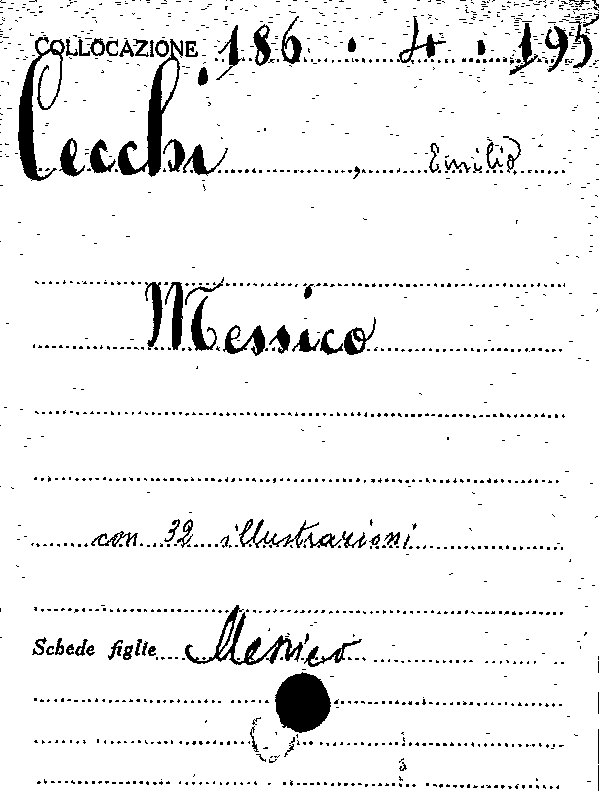 COLLOCAZIONE 186 . 4 . 195
Cecchi, Emilio
Messico
con 32 illustrazioni
Schede figlie Messico